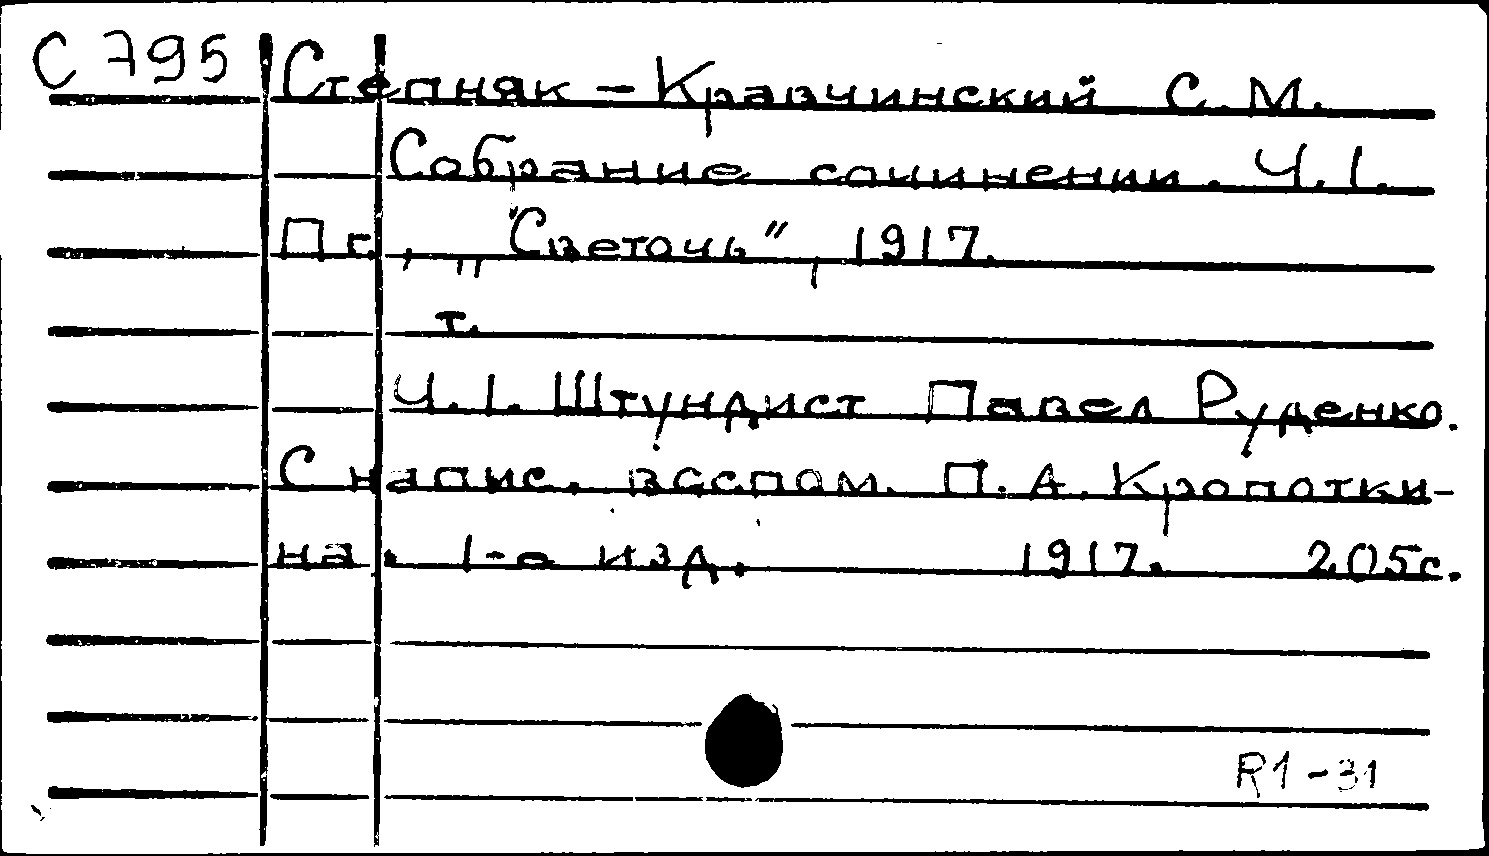 С 795 Степняк-Кравчинский С.М.
Собрание сочинении. Ч.1.
Пг., „Светочь”, 1917.
т.
Ч.1. Штундист Павел Руденко.
С напис. воспом. П.А. Кропотки-
на. 1-е изд. 1917. 205с.
R1-31